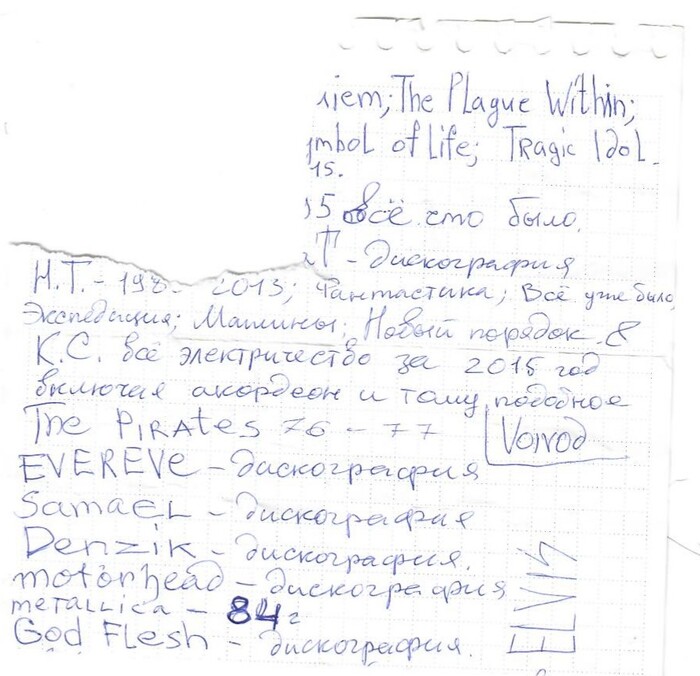 The Plague Within;
of Life; Tragic Idol.
15.
всё что было.
- дискография
Н.Т. - 198 2013; Фантастика; Всё уже было
Экспедиция; Машины; Новый порядок.
К.С. всё электричество за 2015 год
включая акордеон и тому подобное
The PIRAtes 76 - 77
Voivod
EVEREVE - дискография
SamaEL - дискография
Denzik - дискография.
motörhead - дискография
metallica - 84 г
God Flesh - дискография.
ELVIS